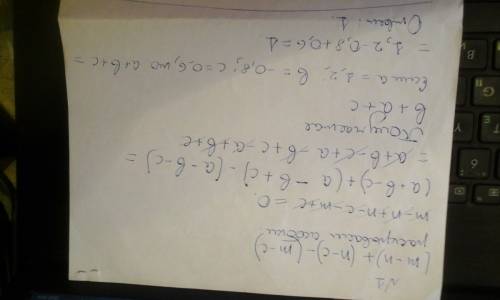 №1
(m-n)+(n-c)-(m-c)
раскрываем скобки
m-n+n-c-m+c=0.
(a+b-c)+(a-b+c)-(a-b-c)=
=a+b-c+a-b+c-a+b+c
Получаем
b+a+c
Если a=1,2; b=-0,8; c=0,6, то a+b+c=
=1,2-0,8+0,6=1
Ответ: 1.